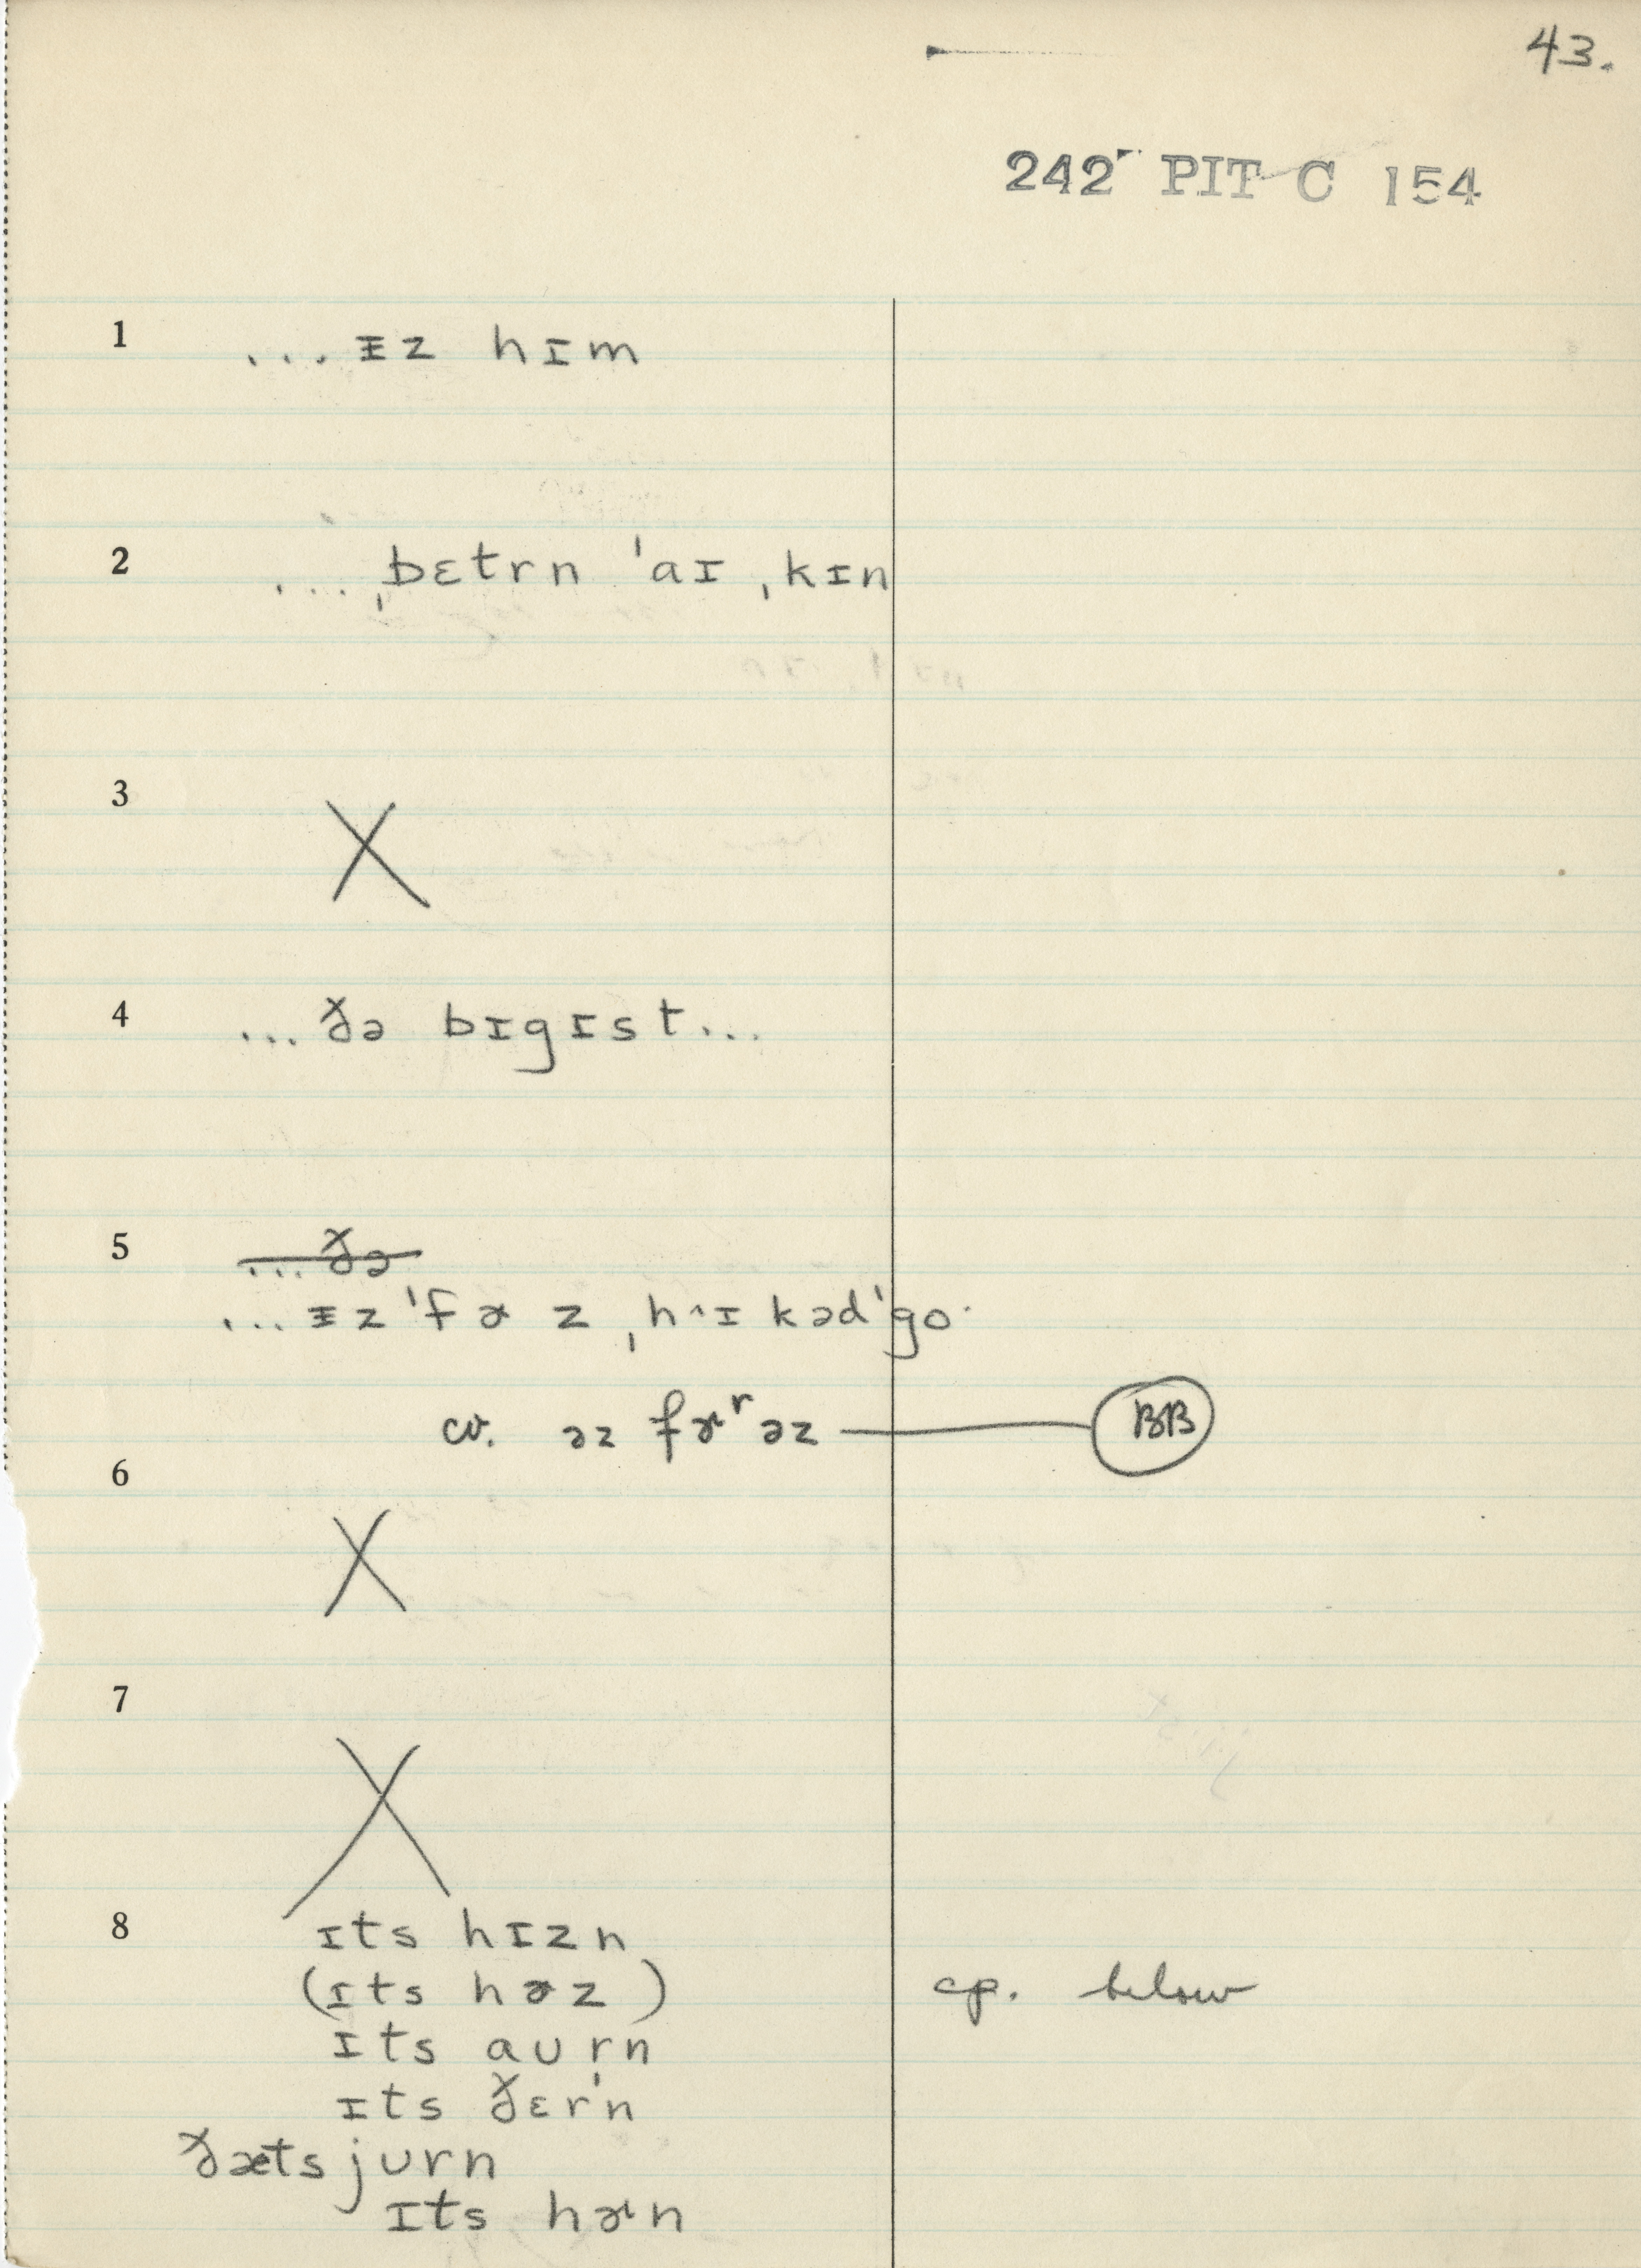 43.
242 PIT C 154
1 ...ᵻz hɪm
2 ...ˌbɛtrn ˈaɪ ˌkɪn
3 X
4 ...ðə bɪgɪst...
5 ...ðə
...ᵻz ˈfɚz ˌhɪ^ɪ kəd ˈgo·
cv. əz fɚʳəz — BB
6 X
7 X
8 ɪts hɪzn
(ɪts hɚz) cp. below
ɪts aʊr̩n
ɪts ðɛr'n
ðæts jʊrn
ɪts hɚn